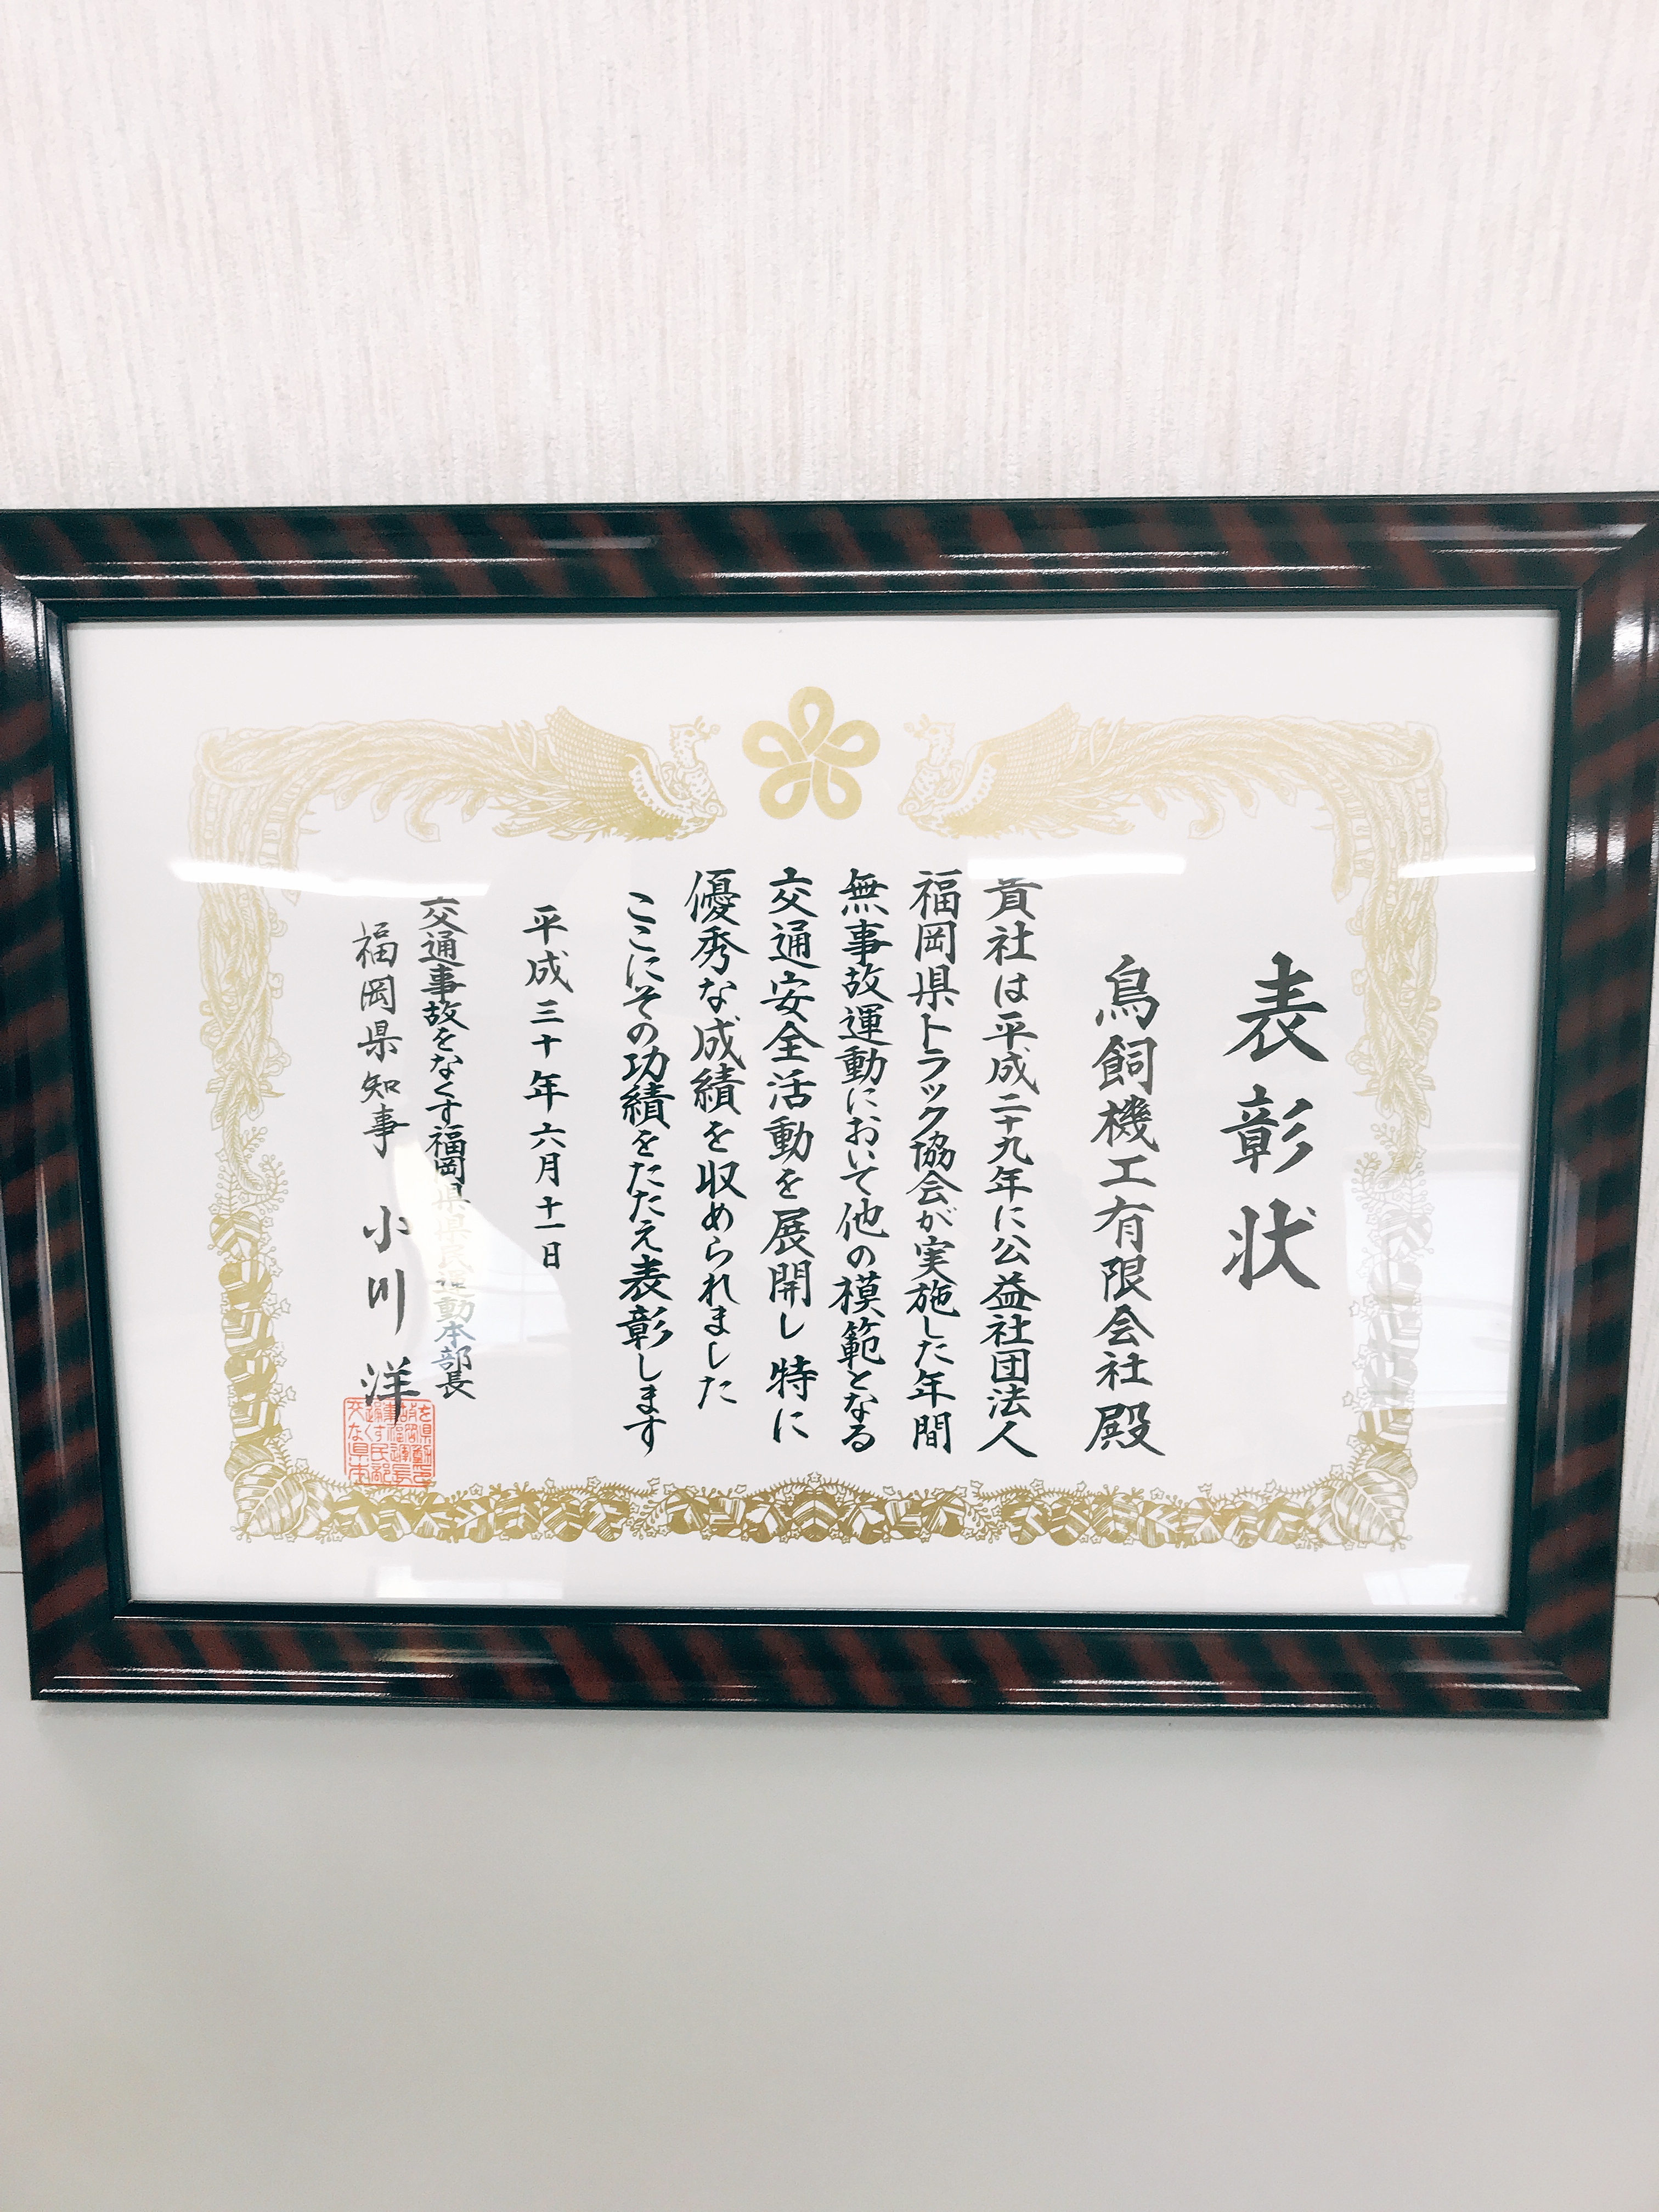 表彰状
鳥飼機工有限会社殿
貴社は平成二十九年に公益社団法人
福岡県トラック協会が実施した年間
無事故運動において他の模範となる
交通安全活動を展開し特に
優秀な成績を収められました
ここにその功績をたたえ表彰します
平成三十年六月十一日
交通事故をなくす福岡県県民運動本部長
福岡県知事 小川洋